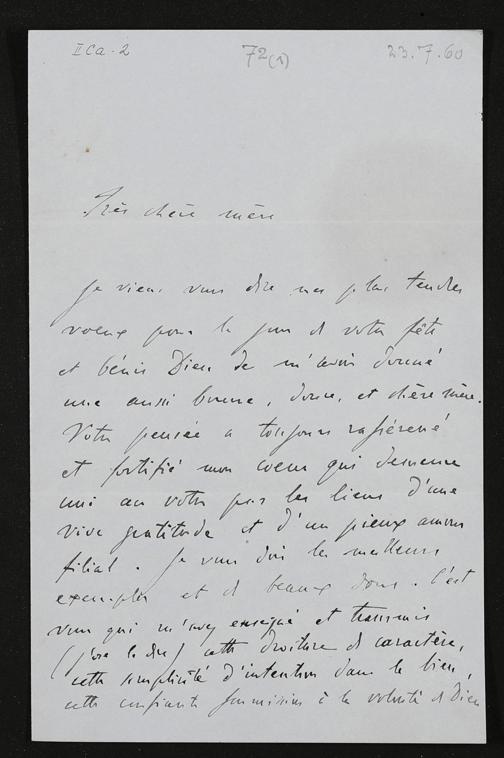 II Ca - 2 72(1) 23.7.60
Très chère mère
Je viens vous dire mes plus tendres
voeux pour le jour de votre fête
et bénir Dieu de m'avoir donné
une aussi bonne, douce, et chère mère.
Votre pensée a toujours rasséréné
et fortifié mon coeur qui demeure
uni au votre par les liens d'une
vive gratitude et d'un pieux amour
filial. Je vous dois les meilleurs
exemples et de beaux dons. C'est
vous qui m'avez enseigné et transmis
(j'ose le dire) cette droiture de caractère,
cette simplicité d'intention dans le bien,
cette confiante soumission à la volonté de Dieu